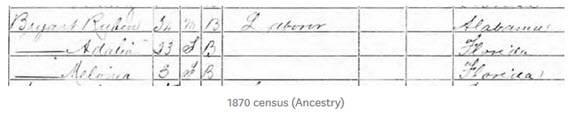 Bryant Ruben 54 M B Laborer Alabama
—— Adalia 23 F B Florida
—— Melvina 3 F B Florida
1870 census (Ancestry)